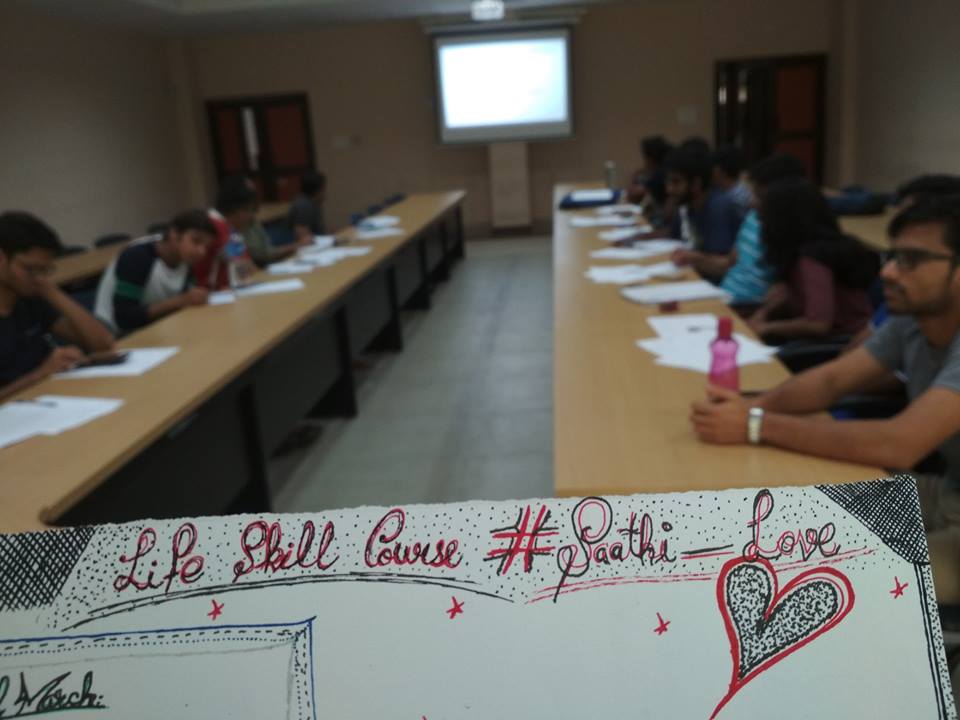 Life Skill Course #Saathi_Love
March: